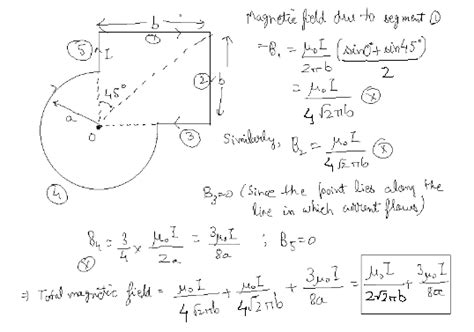 b
①
⑤ I
45°
② b
a
O
③
④
Magnetic field due to segment ①
=B₁ = μ₀I/2πb (sin0°+sin45°)/2
= μ₀I/4√2πb ⊗
Similarly, B₂ = μ₀I/4√2πb ⊗
B₃=0 (Since the point lies along the
line in which current flows)
B₄ = 3/4 × μ₀I/2a = 3μ₀I/8a ; B₅=0
⊗
⇒ Total magnetic field = μ₀I/4√2πb + μ₀I/4√2πb + 3μ₀I/8a = μ₀I/2√2πb + 3μ₀I/8a